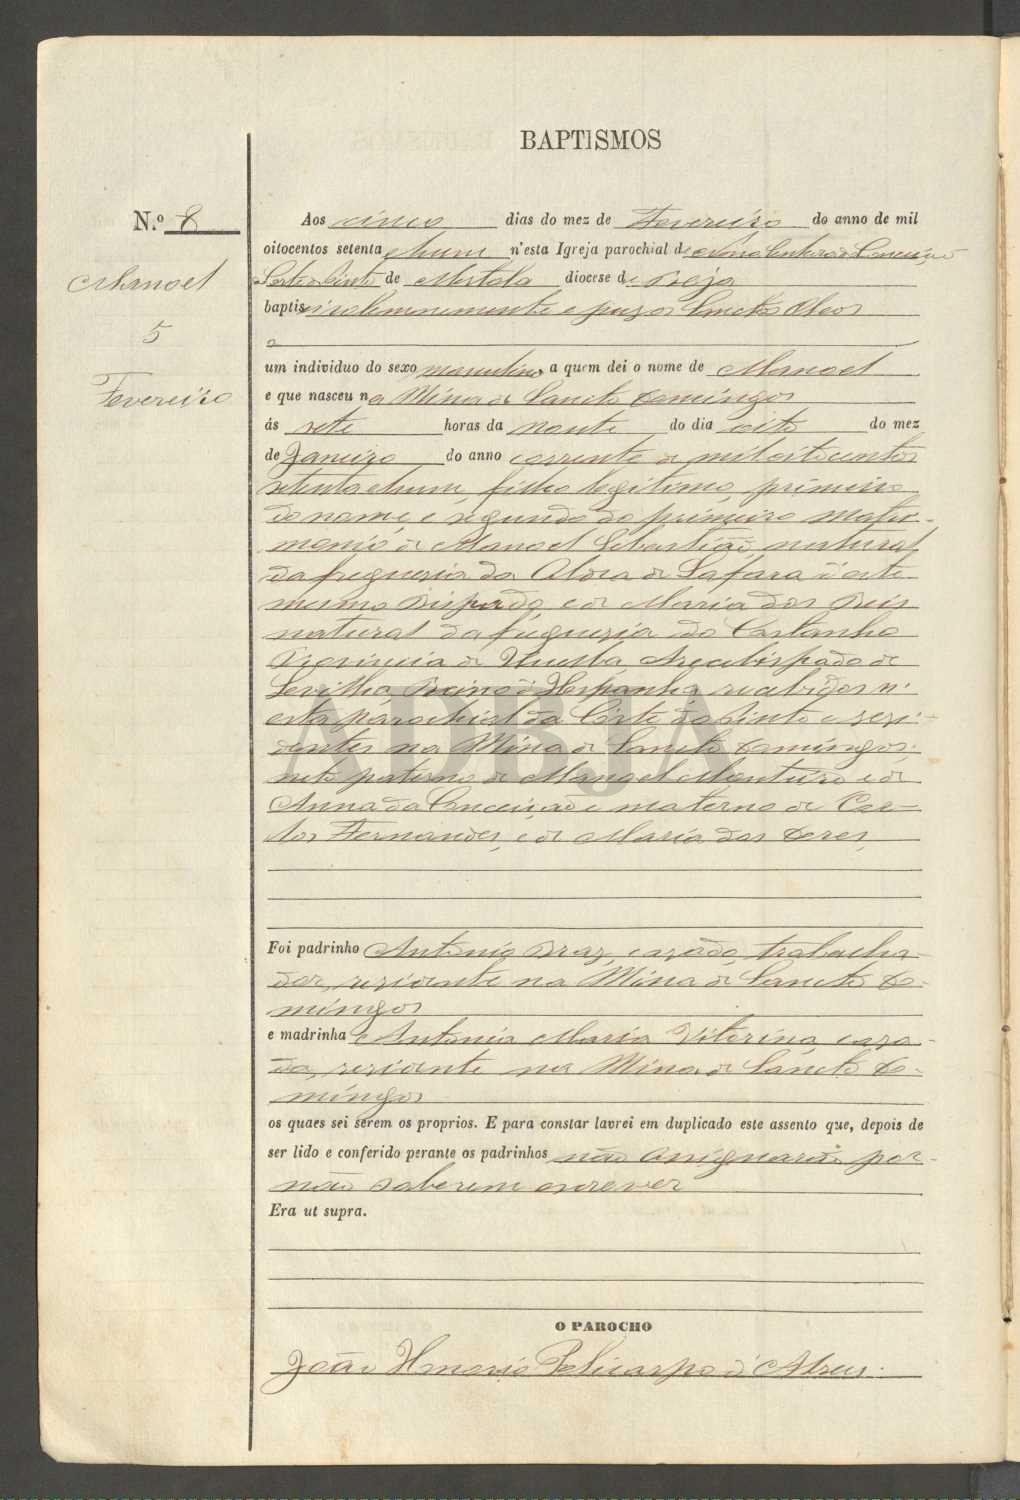 BAPTISMOS
N.º 8
Manoel
5
Fevereiro
Aos cinco dias do mez de Fevereiro do anno de mil
oitocentos setenta e hum n'esta Igreja parochial de Nossa Senhora da Conceição
Corte do Pinto de Mertola diocese de Beja
baptisei solemnemente e puz os Sanctos Oleos
a
um individuo do sexo masculino a quem dei o nome de Manoel
e que nasceu na Mina de Sancto Domingos
ás sete horas da noute do dia oito do mez
de Janeiro do anno corrente de mil oitocentos
setenta e hum, filho legitimo, primeiro
do nome, e segundo do primeiro matri-
monio de Manoel Sebastião, natural
da freguesia da Aldea de Safara d'este
mesmo Bispado, e de Maria dos Reis
natural da freguesia do Castanho
Provincia de Huelba, Arcebispado de
Sevilha, Reino d'Hespanha recebidos n'
esta parochial da Corte do Pinto e resi-
dentes na Mina de Sancto Domingos;
neto paterno de Manoel Monteiro e de
Anna da Conceição e materno de Car-
los Fernandes, e de Maria das Dores,
Foi padrinho Antonio Braz, casado, trabalha-
dor, residente na Mina de Sancto Do-
mingos
e madrinha Antonia Maria Vitorina, casa-
da, residente na Mina de Sancto Do-
mingos
os quaes sei serem os proprios. E para constar lavrei em duplicado este assento que, depois de
ser lido e conferido perante os padrinhos não assignarão por-
não saberem escrever
Era ut supra.
O PAROCHO
João Honorio Policarpo d'Abreu.
ADBJA